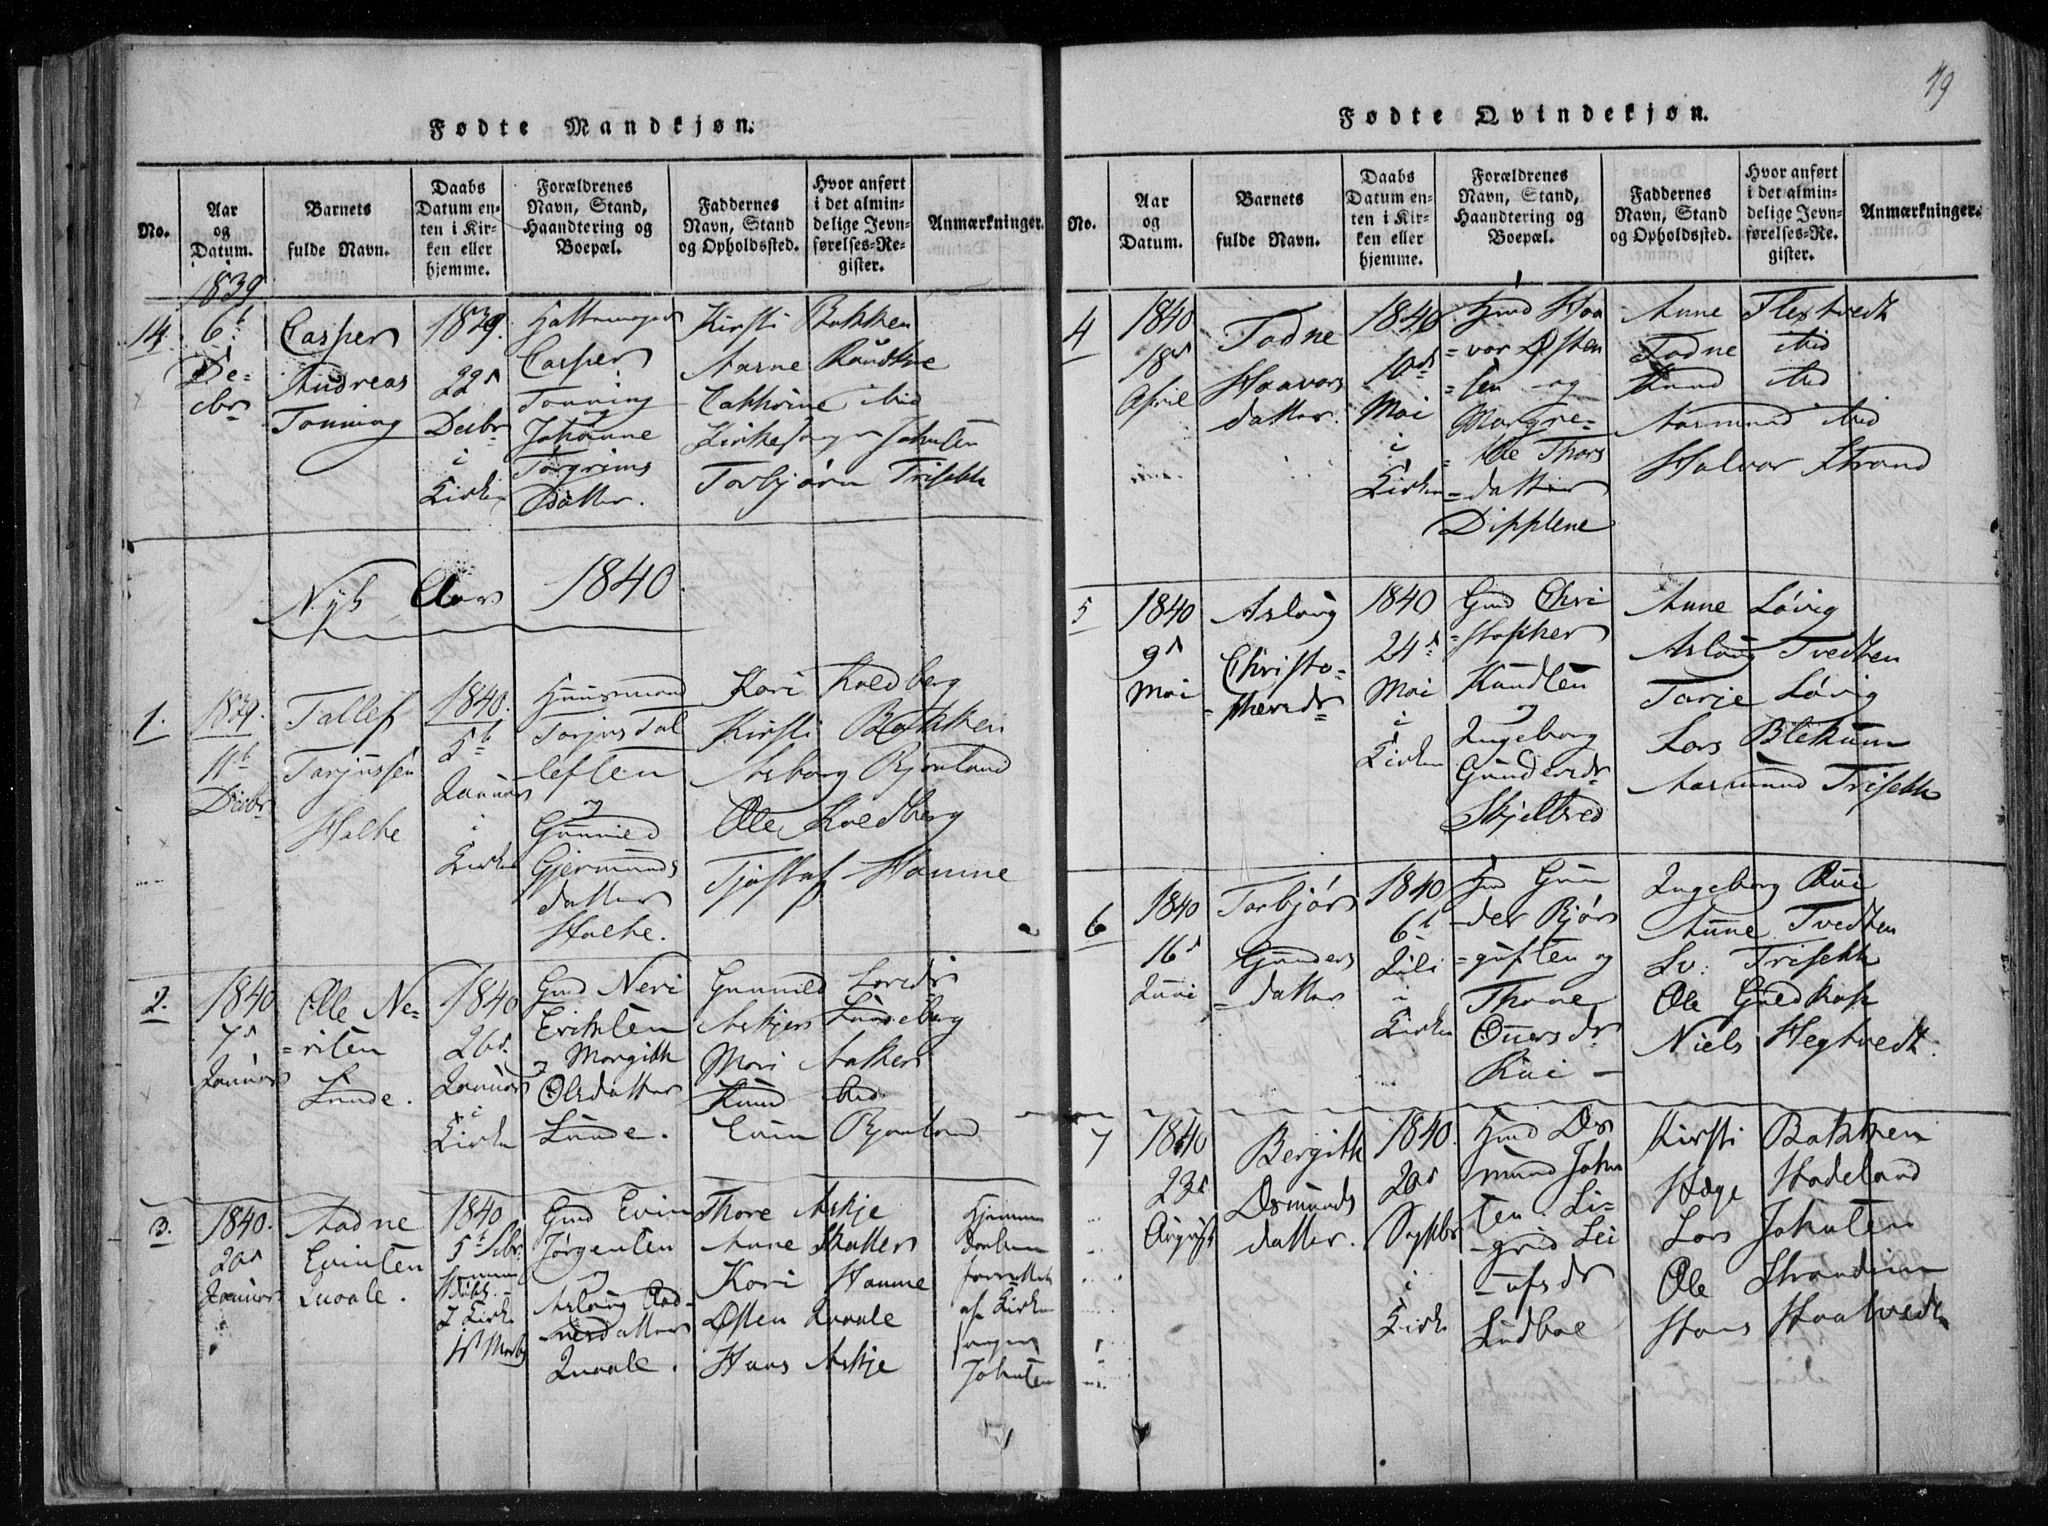 79
Fødte Mandkjøn.
No.
Aar
og
Datum.
Barnets
fulde Navn.
Daabs
Datum en-
ten i Kir-
ken eller
hjemme.
Forældrenes
Navn, Stand,
Haandtering og
Boepæl.
Faddernes
Navn, Stand
og Opholdssted.
Hvor anført
i det almin-
delige Jevn-
førelses-Re-
gister.
Anmærkninger.
14.
1839
6t
De-
cbr
Casper
Andreas
Tonning
1839.
22d
Decbr
i
Kirken
Casper
Tonning
og
Johanne
Torgrims
Datter.
Kirsti Bakken
Aarne
Cathrine ibid
Kirkesanger Johnsen
Torbjørn Trisett
Nyt Aar 1840.
1.
1839.
11t
Decbr
Tallef
Tarjussen
Holte
1840.
5t
Januar
i
Kirken
Huusmand
Tarjus Tal
lefsen
og
Gunnild
Gjermunds
datter
Holte.
Kari Roedberg
Kirsti Bakken
Asborg Bjonland
Ole Roedberg
Tjøstaf Hamne
2.
1840
7d
Januar
Ole Ne-
=risen
Lunde.
1840
26d
Januar
i
Kirken
Gmd Neri
Eriksen
og Margith
Olsdatter
Lunde.
Gunnild
Askjer Lundeberg
Mari Aaker
Knud ibid
Evin Bjonland
3.
1840.
20d
Januar
Aadne
Evinsen
Qvaale.
1840
5t Febr
Kirke
1st Marts
Gmd Evin
Jørgensen
og
Aslaug Aad-
nesdatter
Qvaale.
Thore Askje
Anne Slatter
Kari Hamne
Østen Qvaale
Hans Askje
Hjemme
daaben
forrettet
af Kirke
sanger
Johnsen
Fødte Qvindekjøn.
No.
Aar
og
Datum.
Barnets
fulde Navn.
Daabs
Datum en-
ten i Kir-
ken eller
hjemme.
Forældrenes
Navn, Stand,
Haandtering og
Boepæl.
Faddernes
Navn, Stand
og Opholdssted.
Hvor anført
i det almin-
delige Jevn-
førelses-Re-
gister.
Anmærkninger.
4
1840
18d
April
Tadne
Haavors
datter.
1840
10d
Mai
i
Kirken
Hmd Haa
=vor Østen
=sen og
Margre-
=the Thors
=datter
Dipplene
Anne Flestvedt
Tadne ibid
Knud ibid
Aasmund ibid
Halvor Strand
5
1840
9d
Mai
Aslaug
Christo-
=phersdr
1840
24d
Mai
i
Kirken
Gmd Chri
=stopher
Knudsen
og
Ingeborg
Gundersdr
Skjelbred
Anne Løvig
Aslaug Tvedten
Tarje Løvig
Lars Blekum
Aasmund Trisett
6
1840
16d
Juni
Torbjør
Gunders
=datter
1840
6t
Juli
i
Kirken
Hmd Gun
=der Bjør
=gufsen og
Thone
Ouersdr
Rui
Ingeborg Rui
Anne Tvedten
Lv: Trisett
Ole Guldkass
Niels Hegtvedt.
7
1840
23d
August
Bergith
Osmunds
datter.
1840.
20d
Septbr
i
Kirke
Hmd Os
mund John
sen Si-
=grid Lei
=ufsdr
Lindboe
Kirsti Bakken
Hæge Hadeland
Lars Johnsen
Ole Strandrim
Hans Haatvedt